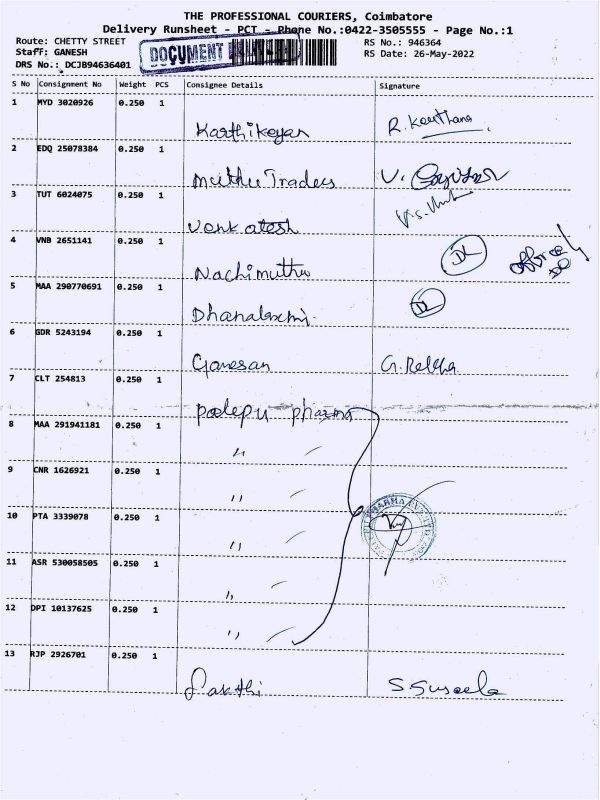 THE PROFESSIONAL COURIERS, Coimbatore
Delivery Runsheet - PCT - Phone No.:0422-3505555 - Page No.:1
Route: CHETTY STREET
RS No.: 946364
Staff: GANESH
DOCUMENT
RS Date: 26-May-2022
DRS No.: DCJB94636401
S No Consignment No Weight PCS Consignee Details Signature
1 MYD 3020926 0.250 1
Karthikeyan R. Keerthana
2 EDQ 25078384 0.250 1
Muthu Traders V.
3 TUT 6024075 0.250 1
Venkatesh
4 VNB 2651141 0.250 1
Nachimuthu office
5 MAA 290770691 0.250 1
Dhanalaxmi.
6 GDR 5243194 0.250 1
Ganesan G. Rekha
7 CLT 254813 0.250 1
Poolepu pharma
8 MAA 291941181 0.250 1
,, 
9 CNR 1626921 0.250 1
,,
10 PTA 3339078 0.250 1
PHARMA
,,
11 ASR 530058505 0.250 1
,,
12 DPI 10137625 0.250 1
,,
13 RJP 2926701 0.250 1
Sakthi S Suseela